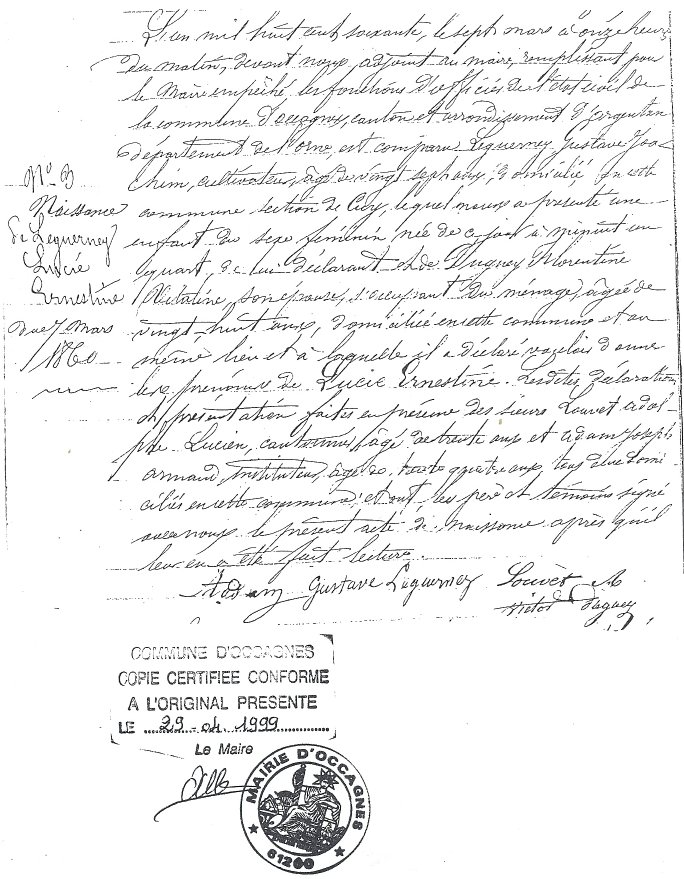 L'an mil huit cent soixante, le sept mars à onze heures
du matin, devant nous, adjoint au maire, remplissant, pour
le Maire empêché les fonctions d'officier de l'état civil de
la commune d'occagnes, canton et arrondissement d'argentan
département de l'orne, est comparu Leguerney Gustave Joa-
chim, cultivateur, âgé de vingt sept ans, domicilié en cette
commune section de Cuy, lequel nous a présenté une
enfant du sexe féminin née de ce jour à minuit un
quart, de lui déclarant et de Duguey Florentine
Victorine, son épouse, s'occupant du ménage, âgée de
vingt huit ans, domiciliée en cette commune et au
même lieu et à laquelle il a déclaré vouloir donner
les prénoms de Lucie Ernestine. Lesdites déclaration
et présentation faites en présence des sieurs Louvet adol-
phe Lucien, cantonnier, âgé de trente ans et adam Joseph
armand, instituteur, âgé de trente quatre ans, tous deux domi-
ciliés en cette commune; et ont, les père et témoins signé
avec nous le présent acte de naissance après qu'il
leur en a été fait lecture.
Adam Gustave Leguerney Louvet A
Victor Duguey
N° 3
Naissance
de Leguerney
Lucie
Ernestine
du 7 Mars
1860
COMMUNE D'OCCAGNES
COPIE CERTIFIEE CONFORME
A L'ORIGINAL PRESENTE
LE 29-04-1999
Le Maire
MAIRIE D'OCCAGNES
61200